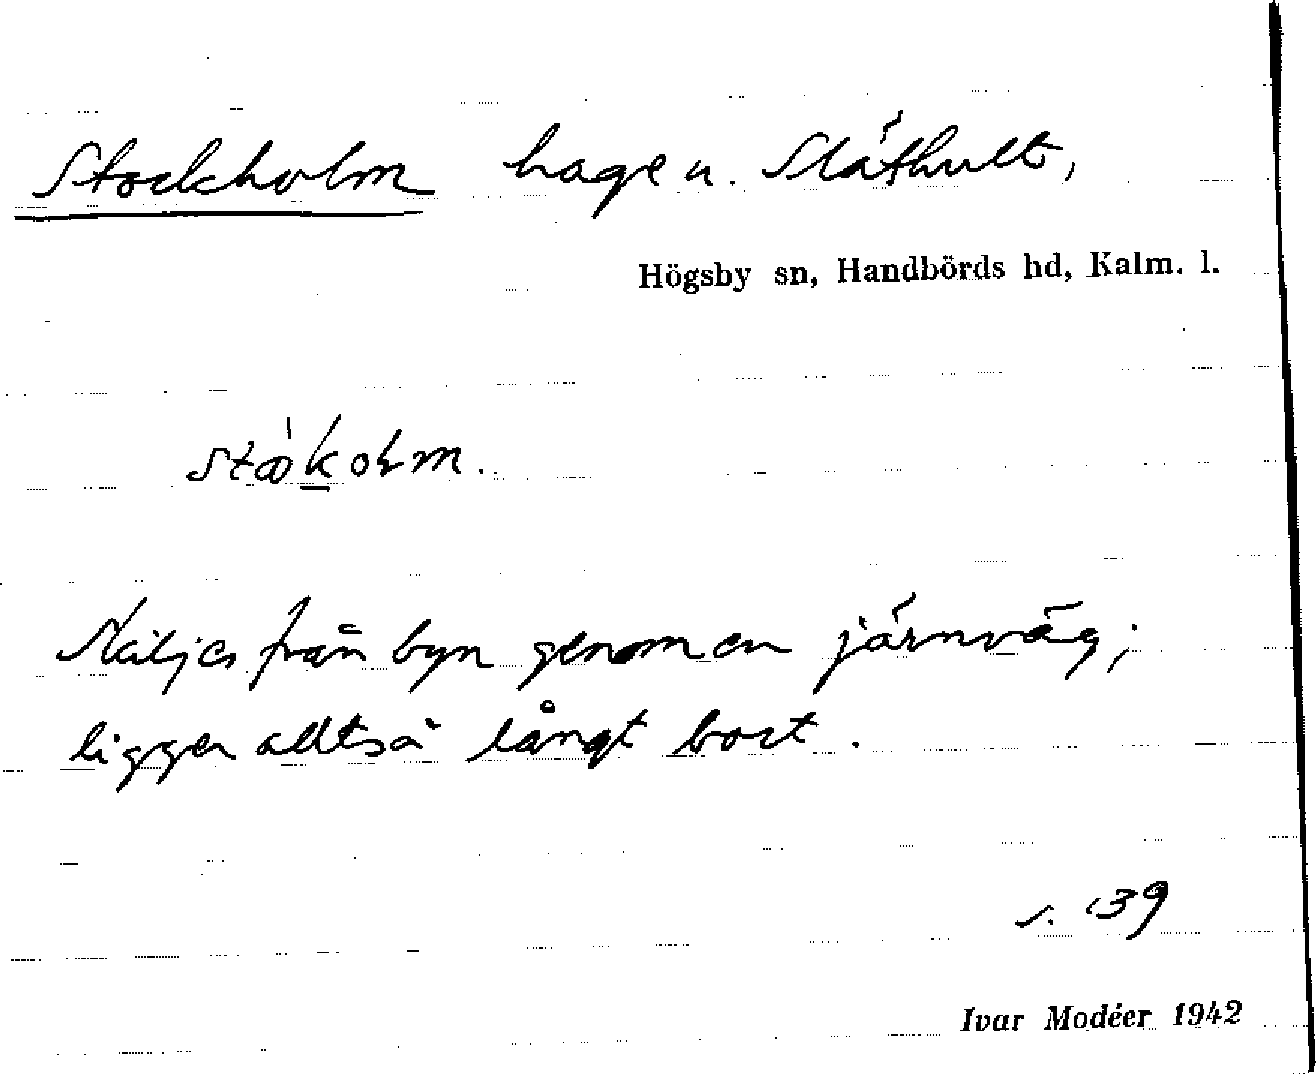 Stockholm hage u. Släthult,
Högsby sn, Handbörds hd, Kalm. l.
Skiljes från byn genom en järnväg;
ligger alltså långt bort.
s. 139
Ivar Modéer 1942